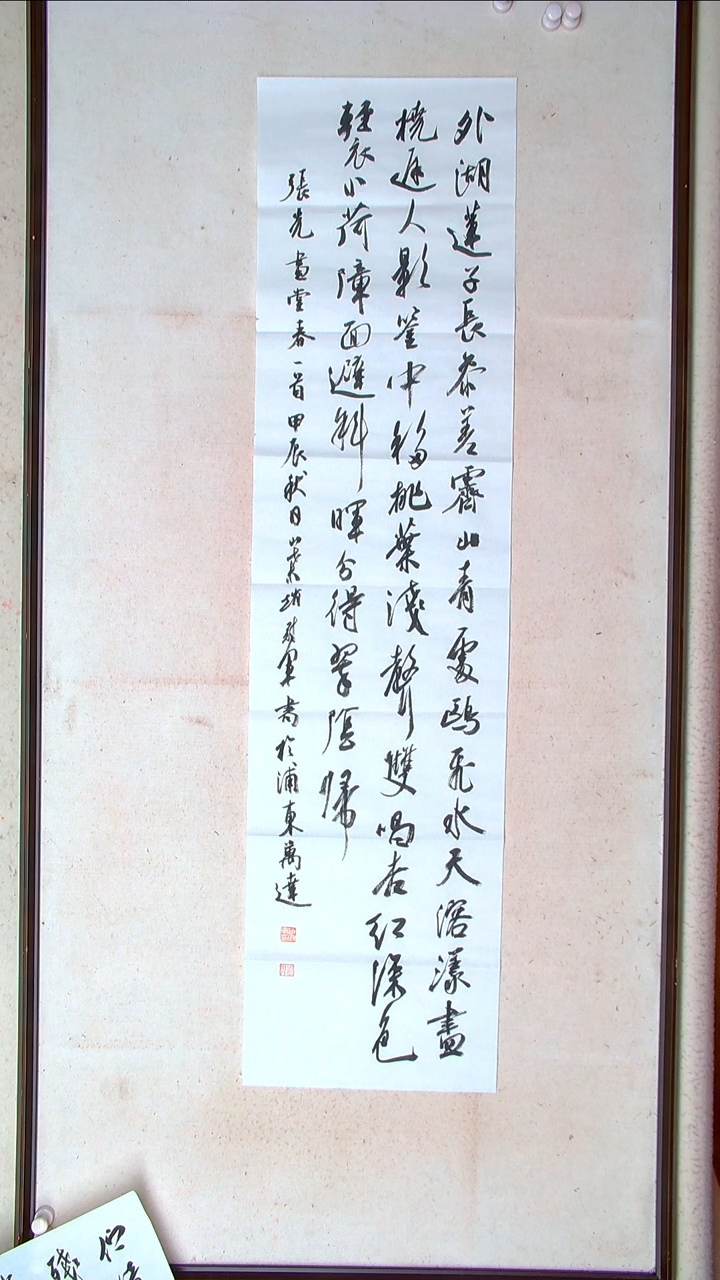 外湖蓮子長參差霽山青處鷗飛水天溶漾畫
橈遲人影鑒中移桃葉淺聲雙唱杏紅深色
輕衣小荷障面避斜暉分得翠陰歸
張先畫堂春一首甲辰秋日軍書於浦東萬達